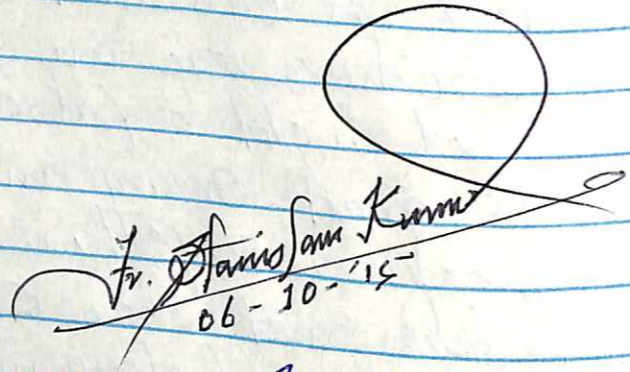 Fr. Stanislaus Kumar
06-10-'15